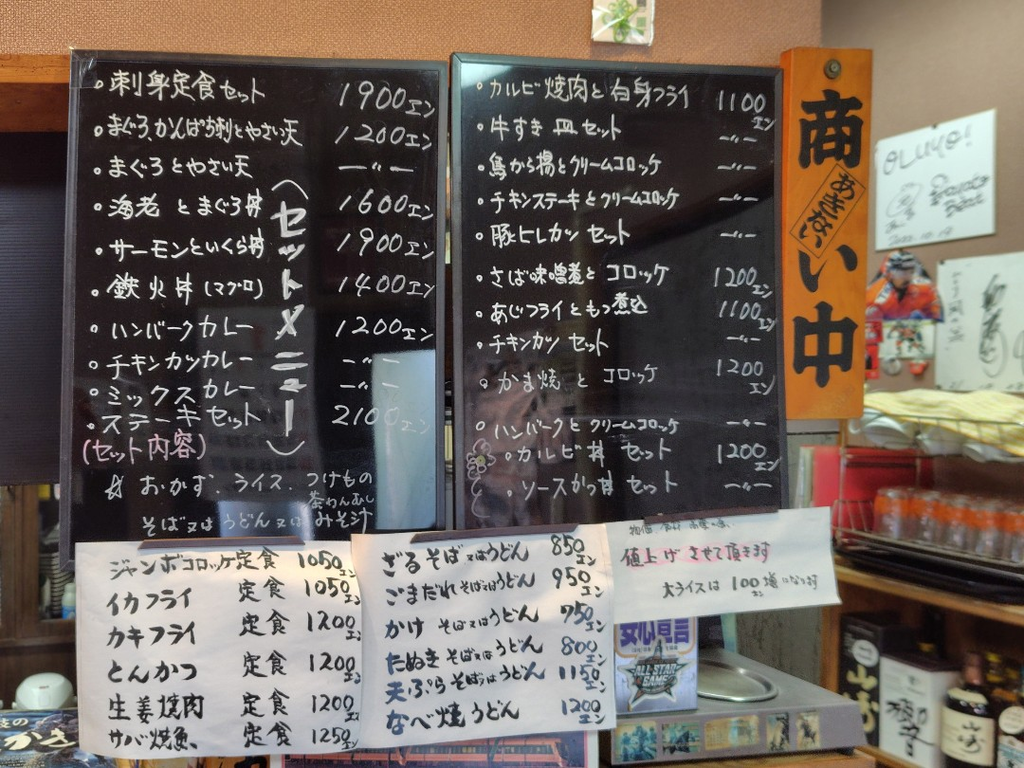 。刺身定食セット 1900エン
。まぐろ、かんぱち刺とやさい天 1200エン
。まぐろとやさい天 ー〃ー
。海老とまぐろ丼 1600エン
。サーモンといくら丼 1900エン
。鉄火丼(マグロ) 1400エン
。ハンバークカレー 1200エン
。チキンカツカレー ー〃ー
。ミックスカレー ー〃ー
。ステーキセット 2100エン
(セットメニュー)
(セット内容)
☆おかず、ライス、つけもの
茶わんむし
そば又はうどん又はみそ汁
。カルビ焼肉と白身フライ 1100エン
。牛すき皿セット ー〃ー
。鳥から揚とクリームコロッケ ー〃ー
。チキンステーキとクリームコロッケ ー〃ー
。豚ヒレカツセット ー〃ー
。さば味噌煮とコロッケ 1200エン
。あじフライともつ煮込 1100エン
。チキンカツセット ー〃ー
。かま焼とコロッケ 1200エン
。ハンバークとクリームコロッケ ー〃ー
。カルビ丼セット 1200エン
。ソースかつ丼セット ー〃ー
商い中
あきない
OLUYO!
ジャンボコロッケ定食 1050エン
イカフライ定食 1050エン
カキフライ定食 1200エン
とんかつ定食 1200エン
生姜焼肉定食 1200エン
サバ焼魚、定食 1250エン
ざるそば又はうどん 850エン
ごまだれそば又はうどん 950エン
かけそば又はうどん 750エン
たぬきそば又はうどん 800エン
天ぷらそば又はうどん 1150エン
なべ焼うどん 1200エン
値上げさせて頂きます
大ライスは100エン増になります
安心宣言
ALL STAR GAME
山崎
山崎